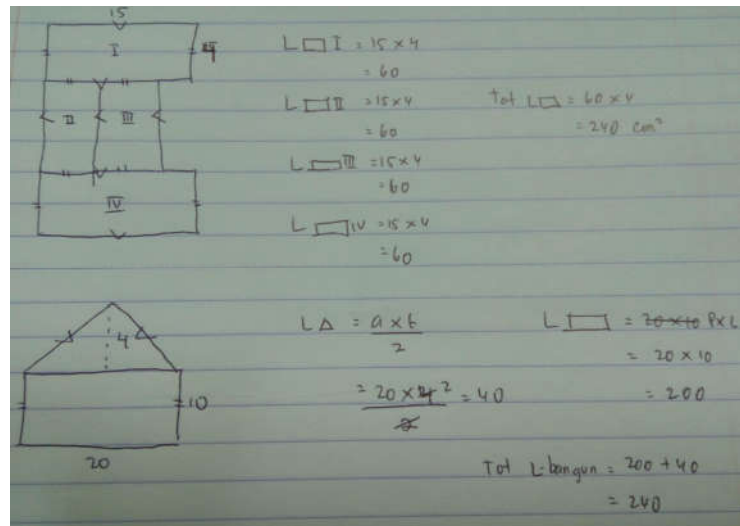 15
I
4
II
III
IV
L □ I = 15 x 4
= 60
L □ II = 15 x 4
= 60
L □ III = 15 x 4
= 60
L □ IV = 15 x 4
= 60
Tot L □ = 60 x 4
= 240 cm²
4
10
20
L △ = a x t
2
= 20 x 4 2 = 40
2
L □ = 20 x 10 P x L
= 20 x 10
= 200
Tot L. bangun = 200 + 40
= 240